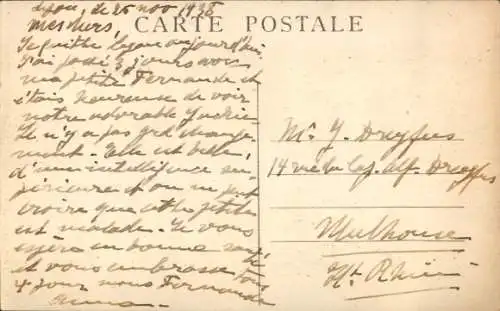 Lyon, le 25 nov 1935
CARTE POSTALE
Mes chers,
Je quitte Lyon aujourd'hui.
J'ai passé 3 jours avec
ma petite Fernande et
étais heureuse de voir
notre adorable
Il n'y a pas grd change-
ment. Elle est belle,
d'une intelligence su-
périeure et on ne peut
croire que cette petite
est malade. Je vous
espère en bonne santé
et vous embrasse tous
4 pour nous Fernande
Anna
Mr J. Dreyfus
14 rue du Cap. Alf. Dreyfus
Mulhouse
Ht Rhin